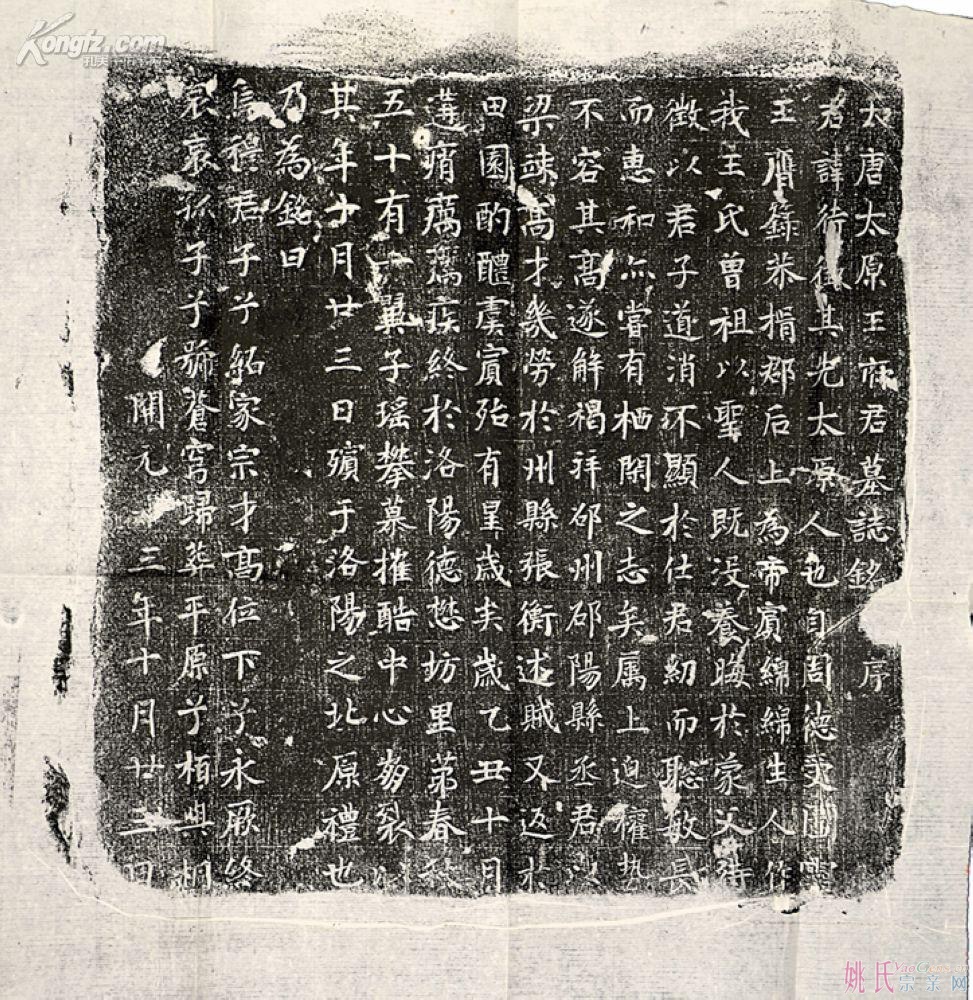 大唐太原王府君墓誌銘 序
君諱待徵其先太原人也自周德
王膺籙恭揖郡后上為帝賓綿綿生人作
我王氏曾祖以聖人既没養晦於蒙父待
徵以君子道消不顯於仕君紉而聡敏長
而惠和尒嘗有栖閑之志矣属上迫權勢
不容其髙遂解褐拜邠州邠陽縣丞君以
梁竦髙才幾勞於州縣張衡述賦又返於
田園酌醴虞賓殆有星歲矣歲乙丑十月
遘痟癘 疾終於洛陽德懋坊里第春秋
五十有一 子瑶攀慕摧酷中心 裂
其年十月廿三日殯于洛陽之北原禮也
乃為銘曰
猗君子兮紹家宗才髙位下兮永厥終
哀哀孤子兮號蒼穹歸葬平原兮栢與桐
開元三年十月廿三日
Kongfz.com
姚氏宗亲网